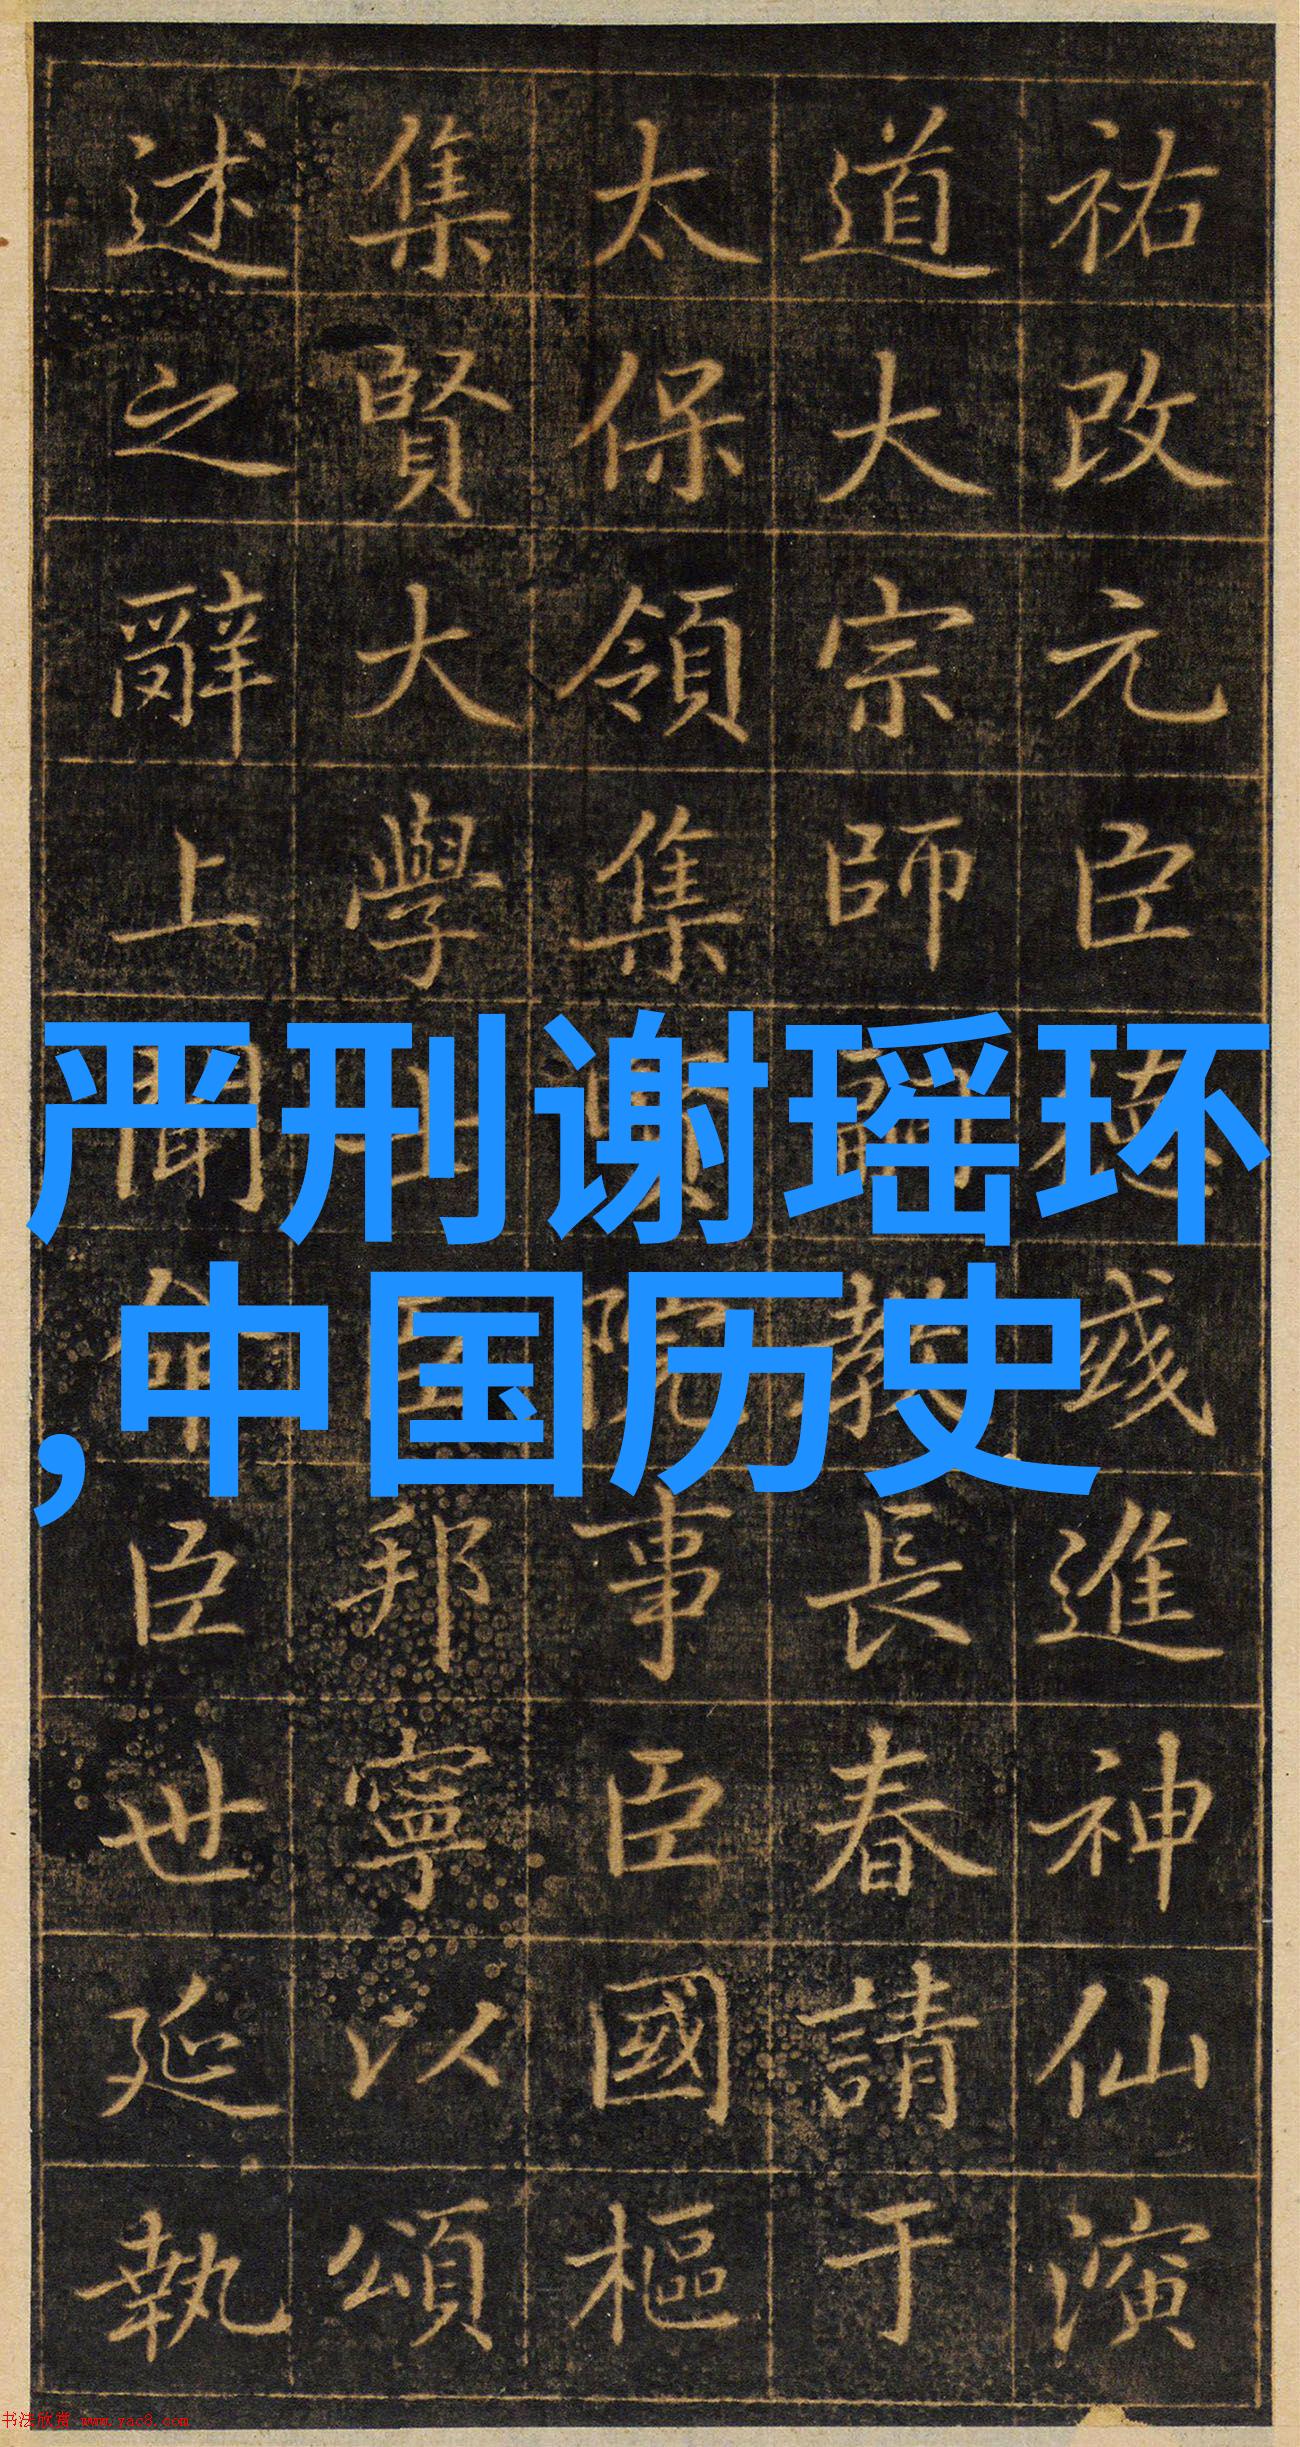 祐改元臣彧進神仙演
道大宗師教長春請于
太保領集院事臣國樞
集賢大學士臣邦寧以頌
述之辭上聞命臣世延執
严刑谢瑶环
,中国历史
书法欣赏 www.yac8.com